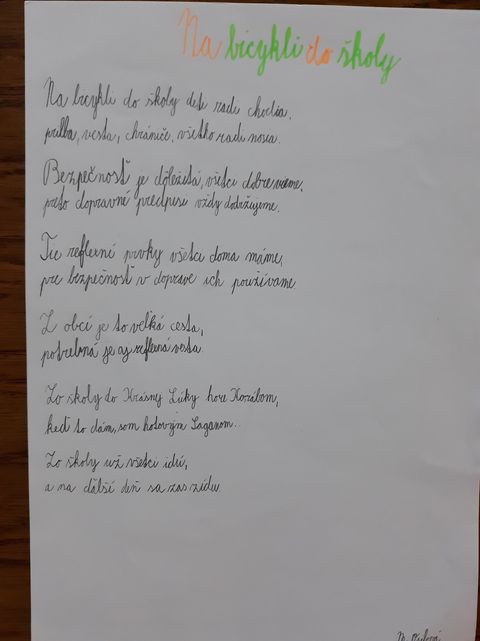 Na bicykli do školy
Na bicykli do školy deti radi chodia,
prilba, vesta, chrániče, všetko radi nosia.
Bezpečnosť je dôležitá, všetci dobre vieme,
preto dopravné predpisy vždy dodržujeme.
Tie reflexné prvky všetci doma máme,
pre bezpečnosť v doprave ich používame.
Z obcí je to veľká cesta,
potrebná je aj reflexná vesta.
Zo školy do Krásnej Lúky hore Korábom,
keď to dám, som hotovým Saganom.
Zo školy už všetci idú,
a na ďalší deň sa zas zídu.
N.